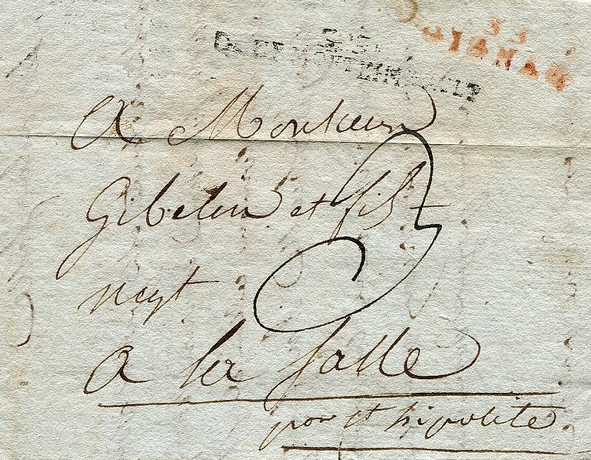 33
GIGNAC
A Monsieur
Gibelin et fils
negt
a la Salle
pour st hipolite
3